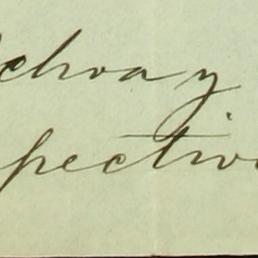 choa y
pectiv